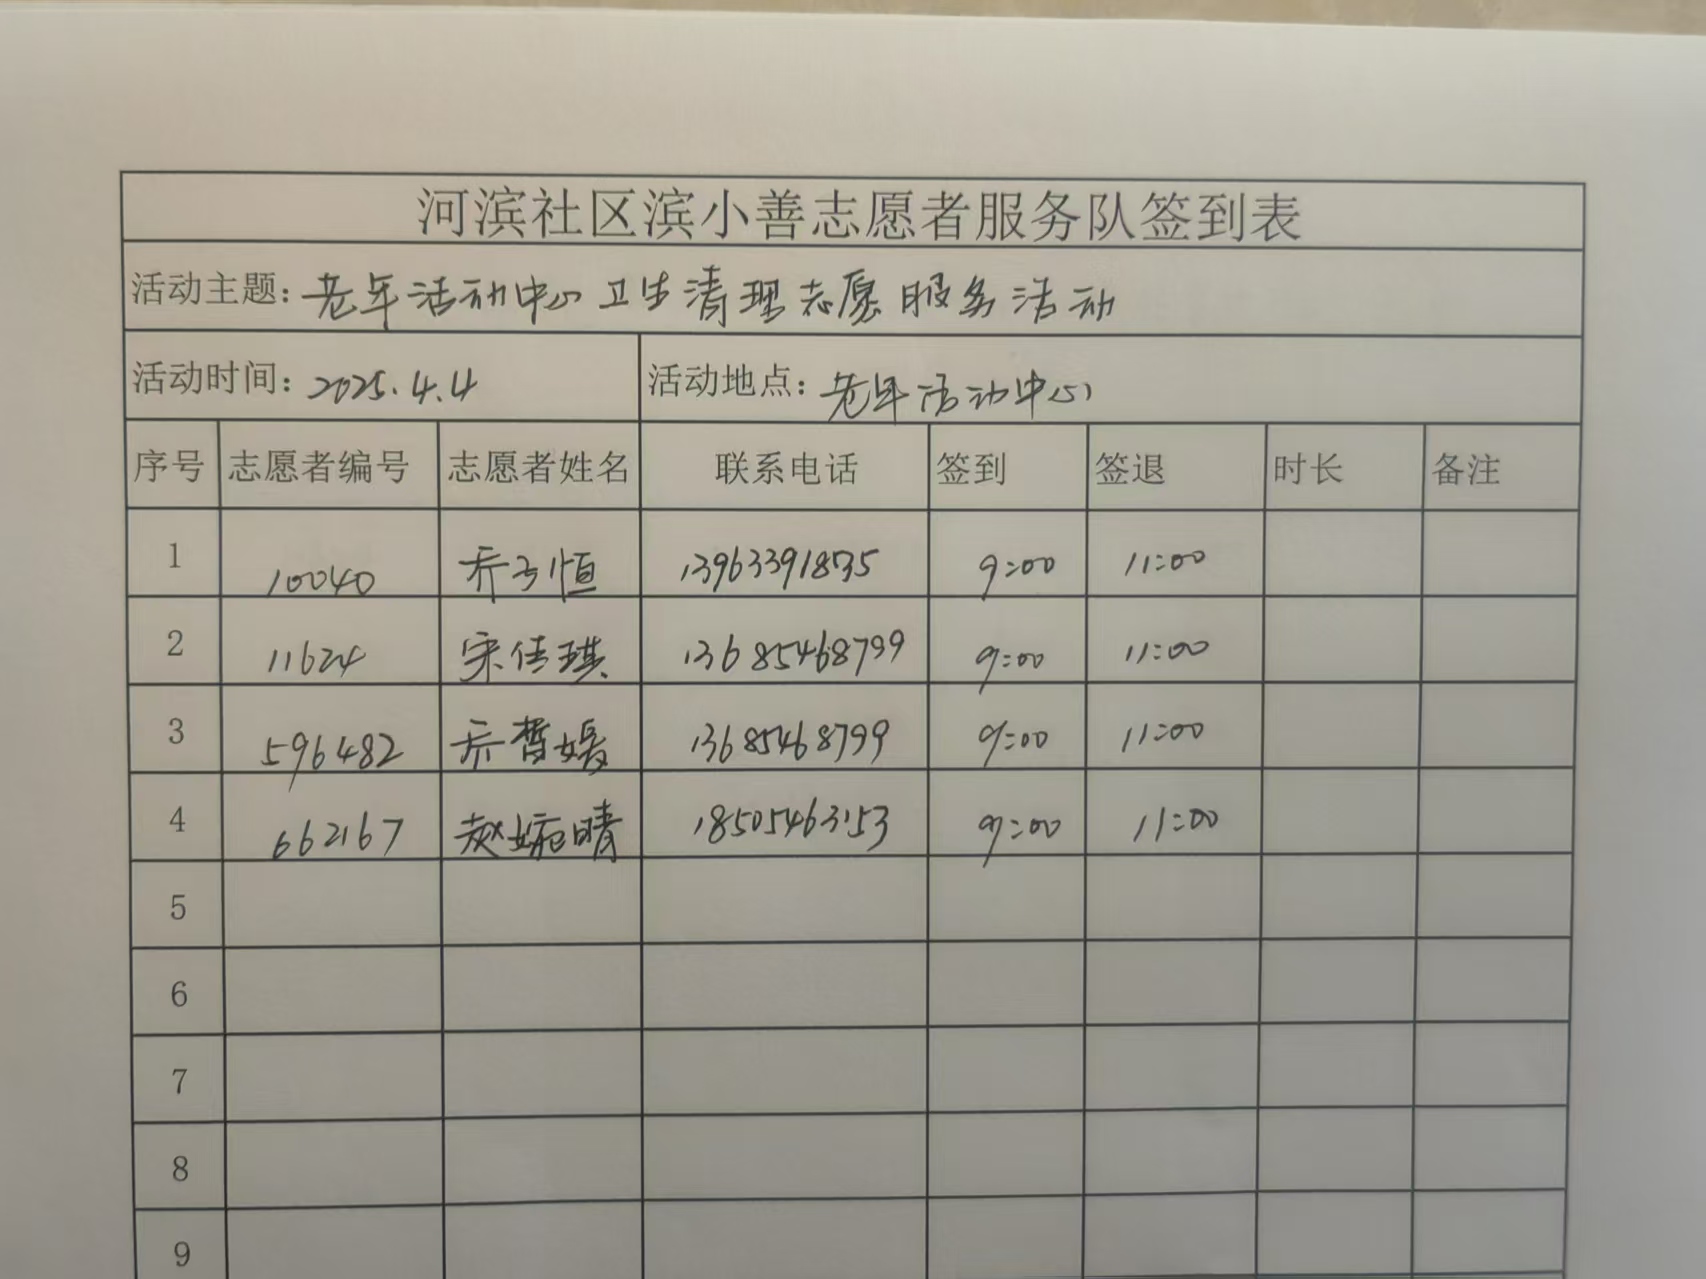 河滨社区滨小善志愿者服务队签到表
活动主题：老年活动中心卫生清理志愿服务活动
活动时间：2025.4.4 活动地点：老年活动中心
序号 志愿者编号 志愿者姓名 联系电话 签到 签退 时长 备注
1 10040 乔子恒 13963391835 9:00 11:00
2 11624 宋佳琪 13685468799 9:00 11:00
3 596482 乔哲媛 13685468799 9:00 11:00
4 662167 赵婉晴 18505463153 9:00 11:00
5
6
7
8
9